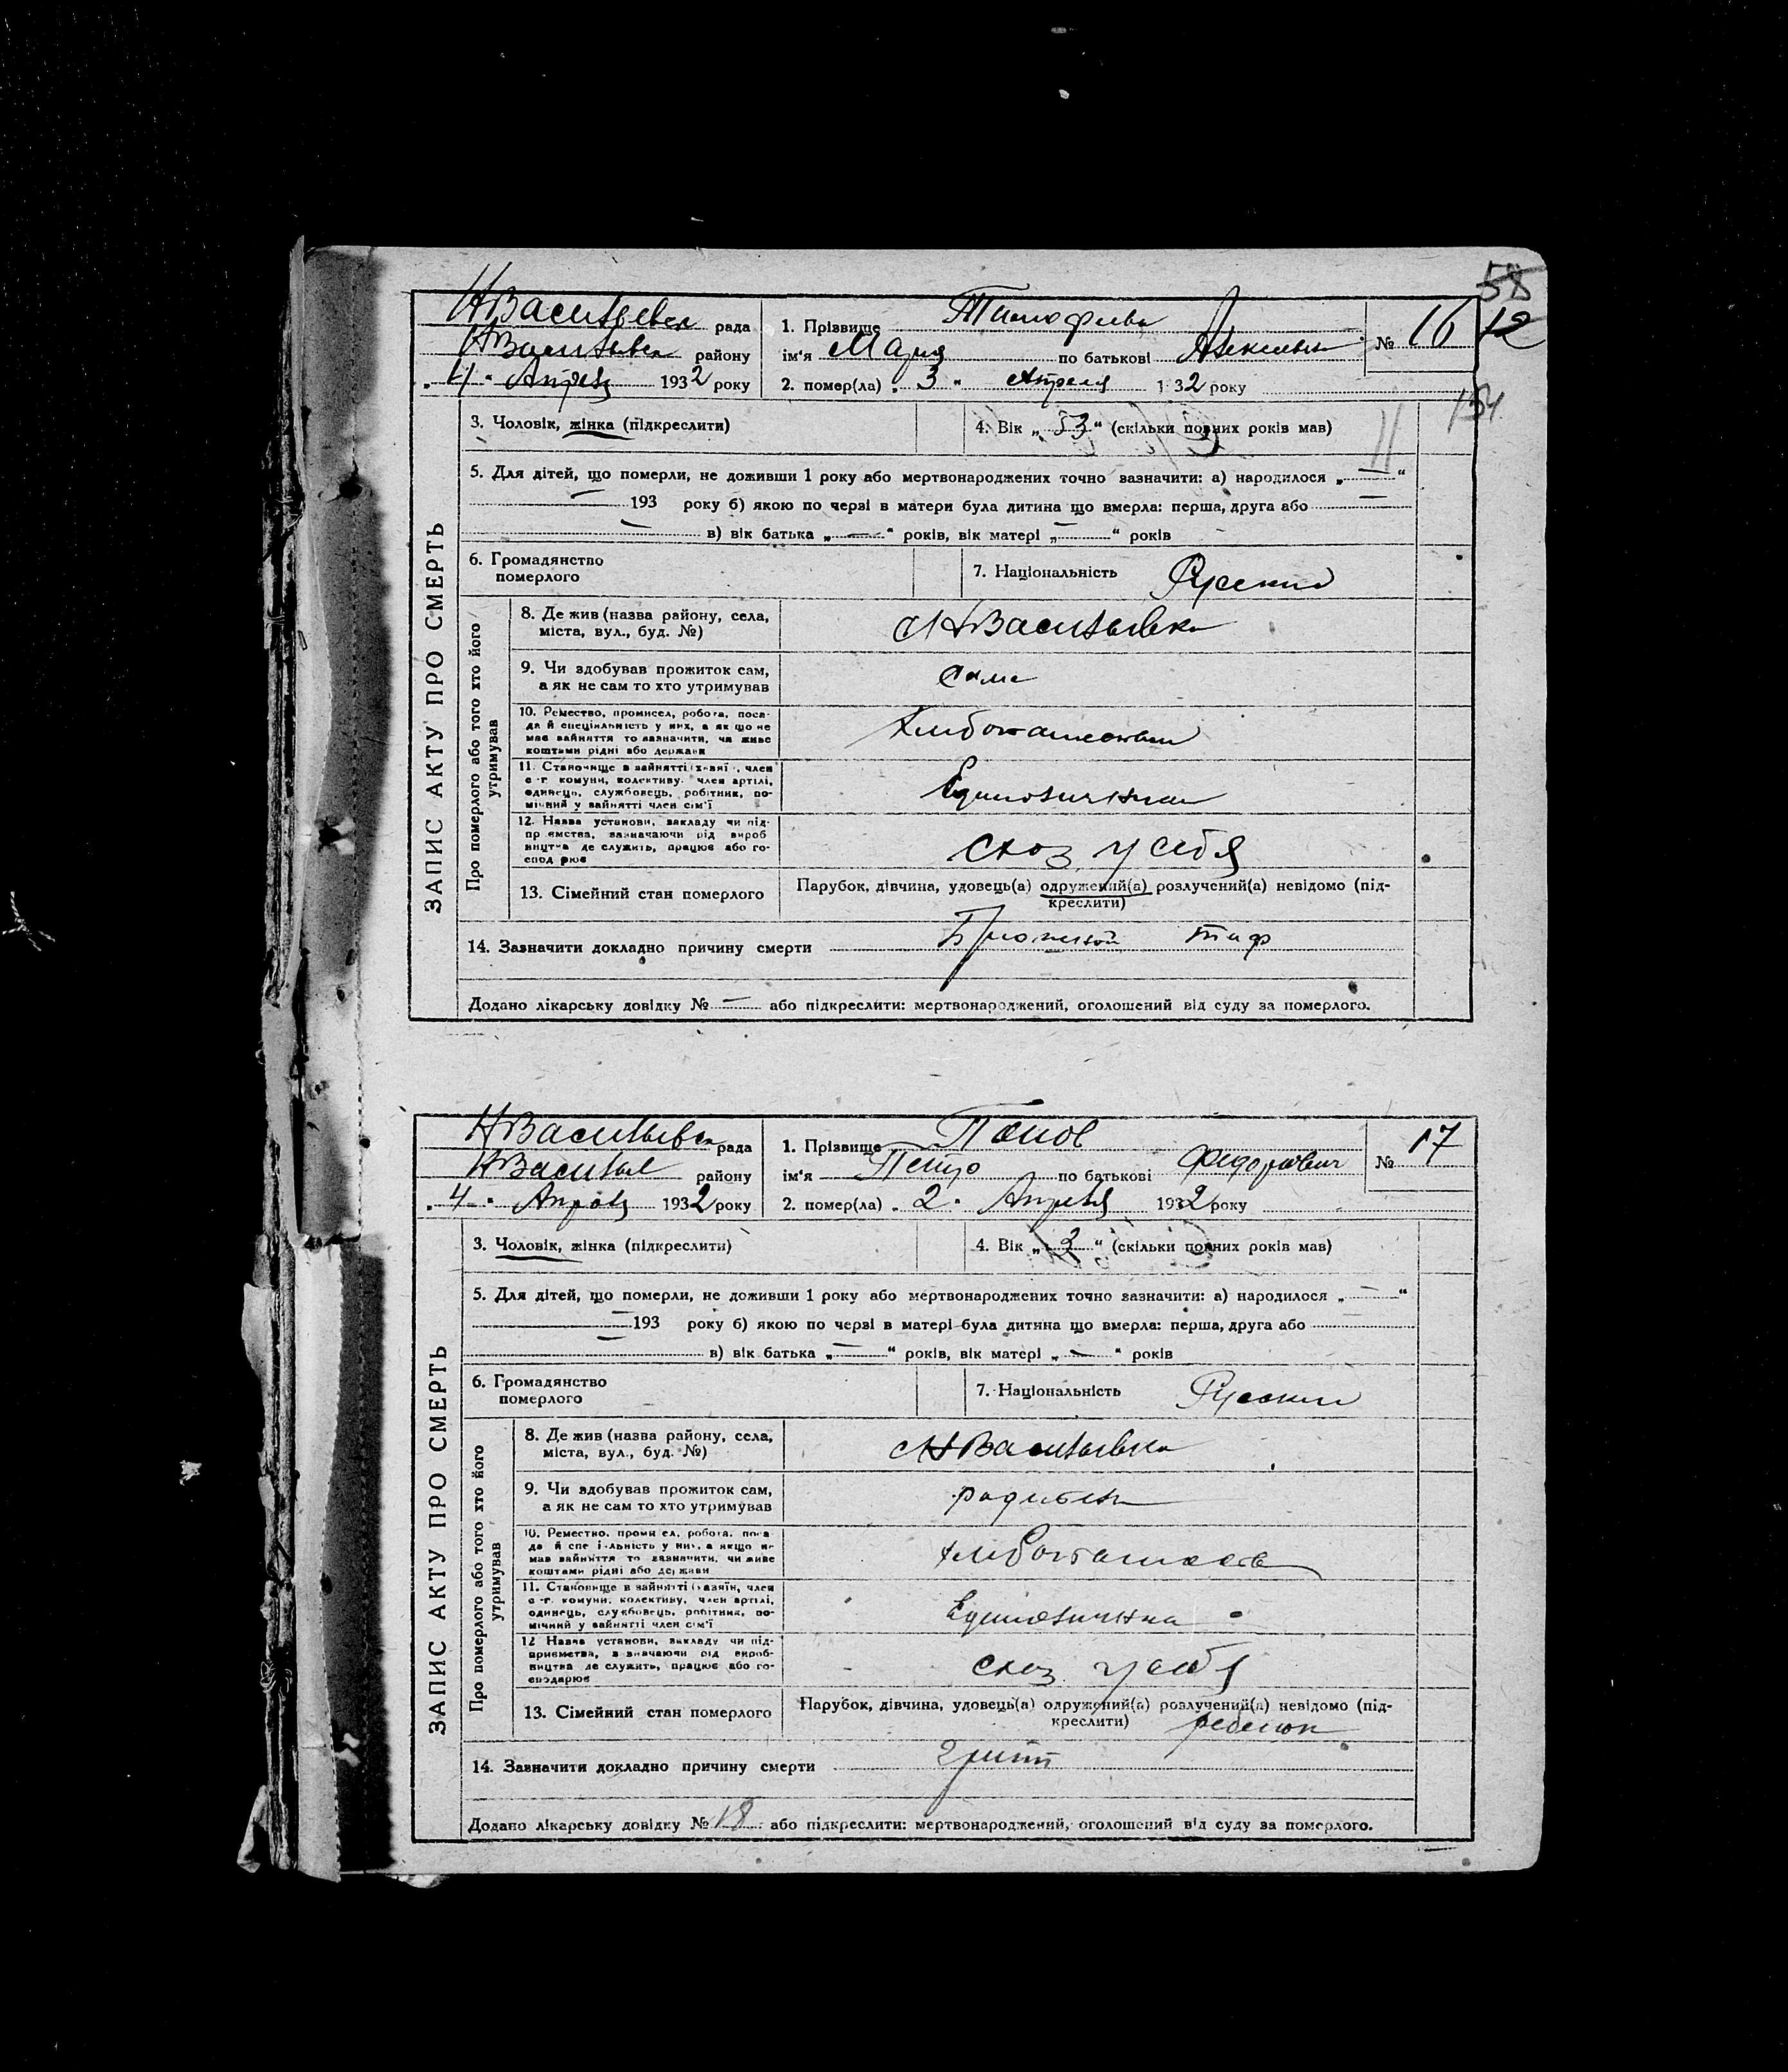 58
12
154
Н Васильевск рада
Н Васильевск району
„ 4 " Апреля 1932 року
1. Прізвище Тимофеева
ім'я Мария по батькові Алексеевна
№ 16
2. помер(ла) „ 3 " Апреля 1932 року
ЗАПИС АКТУ ПРО СМЕРТЬ
3. Чоловік, жінка (підкреслити)
4. Вік „ 53 " (скільки повних років мав)
5. Для дітей, що померли, не доживши 1 року або мертвонароджених точно зазначити: а) народилося „ — "
— 193 року б) якою по черзі в матери була дитина що вмерла: перша, друга або —
— в) вік батька „ — " років, вік матері „ — " років
6. Громадянство
померлого
7. Національність Русский
Про померлого або того хто його
утримував
8. Де жив (назва району, села,
міста, вул., буд. №)
с Н Васильевка
9. Чи здобував прожиток сам,
а як не сам то хто утримував
сама
10. Ремество, промисел, робота, поса-
да й спеціяльність у них, а як що не
має зайняття то зазначити, чи живе
коштами рідні або держави
хлебопашество
11. Становище в зайнятті (хазяїн, член
с.-г. комуни, колективу, член артілі,
одинець, службовець, робітник, по-
мічний у зайнятті член сім'ї
Единоличник
12. Назва установи, закладу чи під-
приємства, зазначаючи рід вироб-
ництва де служить, працює або го-
сподарює
схоз у себя
13. Сімейний стан померлого
Парубок, дівчина, удовець(а) одружений(а) розлучений(а) невідомо (під-
креслити)
14. Зазначити докладно причину смерти Брюжной тиф
Додано лікарську довідку № — або підкреслити: мертвонароджений, оголошений від суду за померлого.
Н Васильевск рада
Н Василье району
„ 4 " Апреля 1932 року
1. Прізвище Попов
ім'я Петро по батькові Федорович
№ 17
2. помер(ла) „ 2 " Апреля 1932 року
ЗАПИС АКТУ ПРО СМЕРТЬ
3. Чоловік, жінка (підкреслити)
4. Вік „ 3 " (скільки повних років мав)
5. Для дітей, що померли, не доживши 1 року або мертвонароджених точно зазначити: а) народилося „ — "
— 193 року б) якою по черзі в матері була дитина що вмерла: перша, друга або
— в) вік батька „ — " років, вік матері „ — " років
6. Громадянство
померлого
7. Національність Русский
Про померлого або того хто його
утримував
8. Де жив (назва району, села,
міста, вул., буд. №)
с Н Васильевка
9. Чи здобував прожиток сам,
а як не сам то хто утримував
родители
10. Ремество, промисел, робота, поса-
да й спеціяльність у них, а якщо не
має зайняття то зазначити, чи живе
коштами рідні або держави
хлебопашеств
11. Становище в зайнятті (хазяїн, член
с.-г. комуни, колективу, член артілі,
одинець, службовець, робітник, по-
мічний у зайнятті член сім'ї
Единолична
12 Назва установи, закладу чи під-
приємства, зазначаючи рід вироб-
ництва де служить, працює або го-
сподарює
схоз у себя
13. Сімейний стан померлого
Парубок, дівчина, удовець(а) одружений(а) розлучений(а) невідомо (під-
креслити) ребенок
14. Зазначити докладно причину смерти грипп
Додано лікарську довідку № 18 або підкреслити: мертвонароджений, оголошений від суду за померлого.